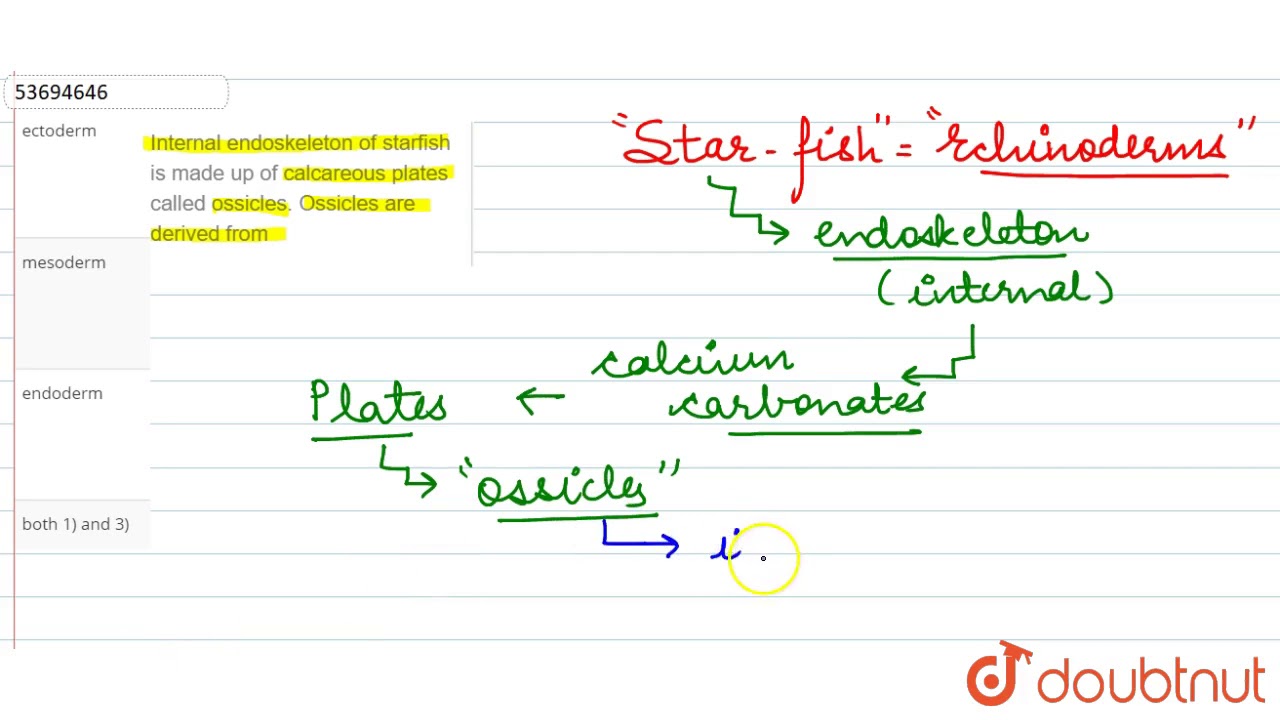 53694646
ectoderm
mesoderm
endoderm
both 1) and 3)
Internal endoskeleton of starfish
is made up of calcareous plates
called ossicles. Ossicles are
derived from
"Star-fish" = "Echinoderms"
endoskeleton
(internal)
calcium
Plates ← carbonates
"ossicles"
doubtnut